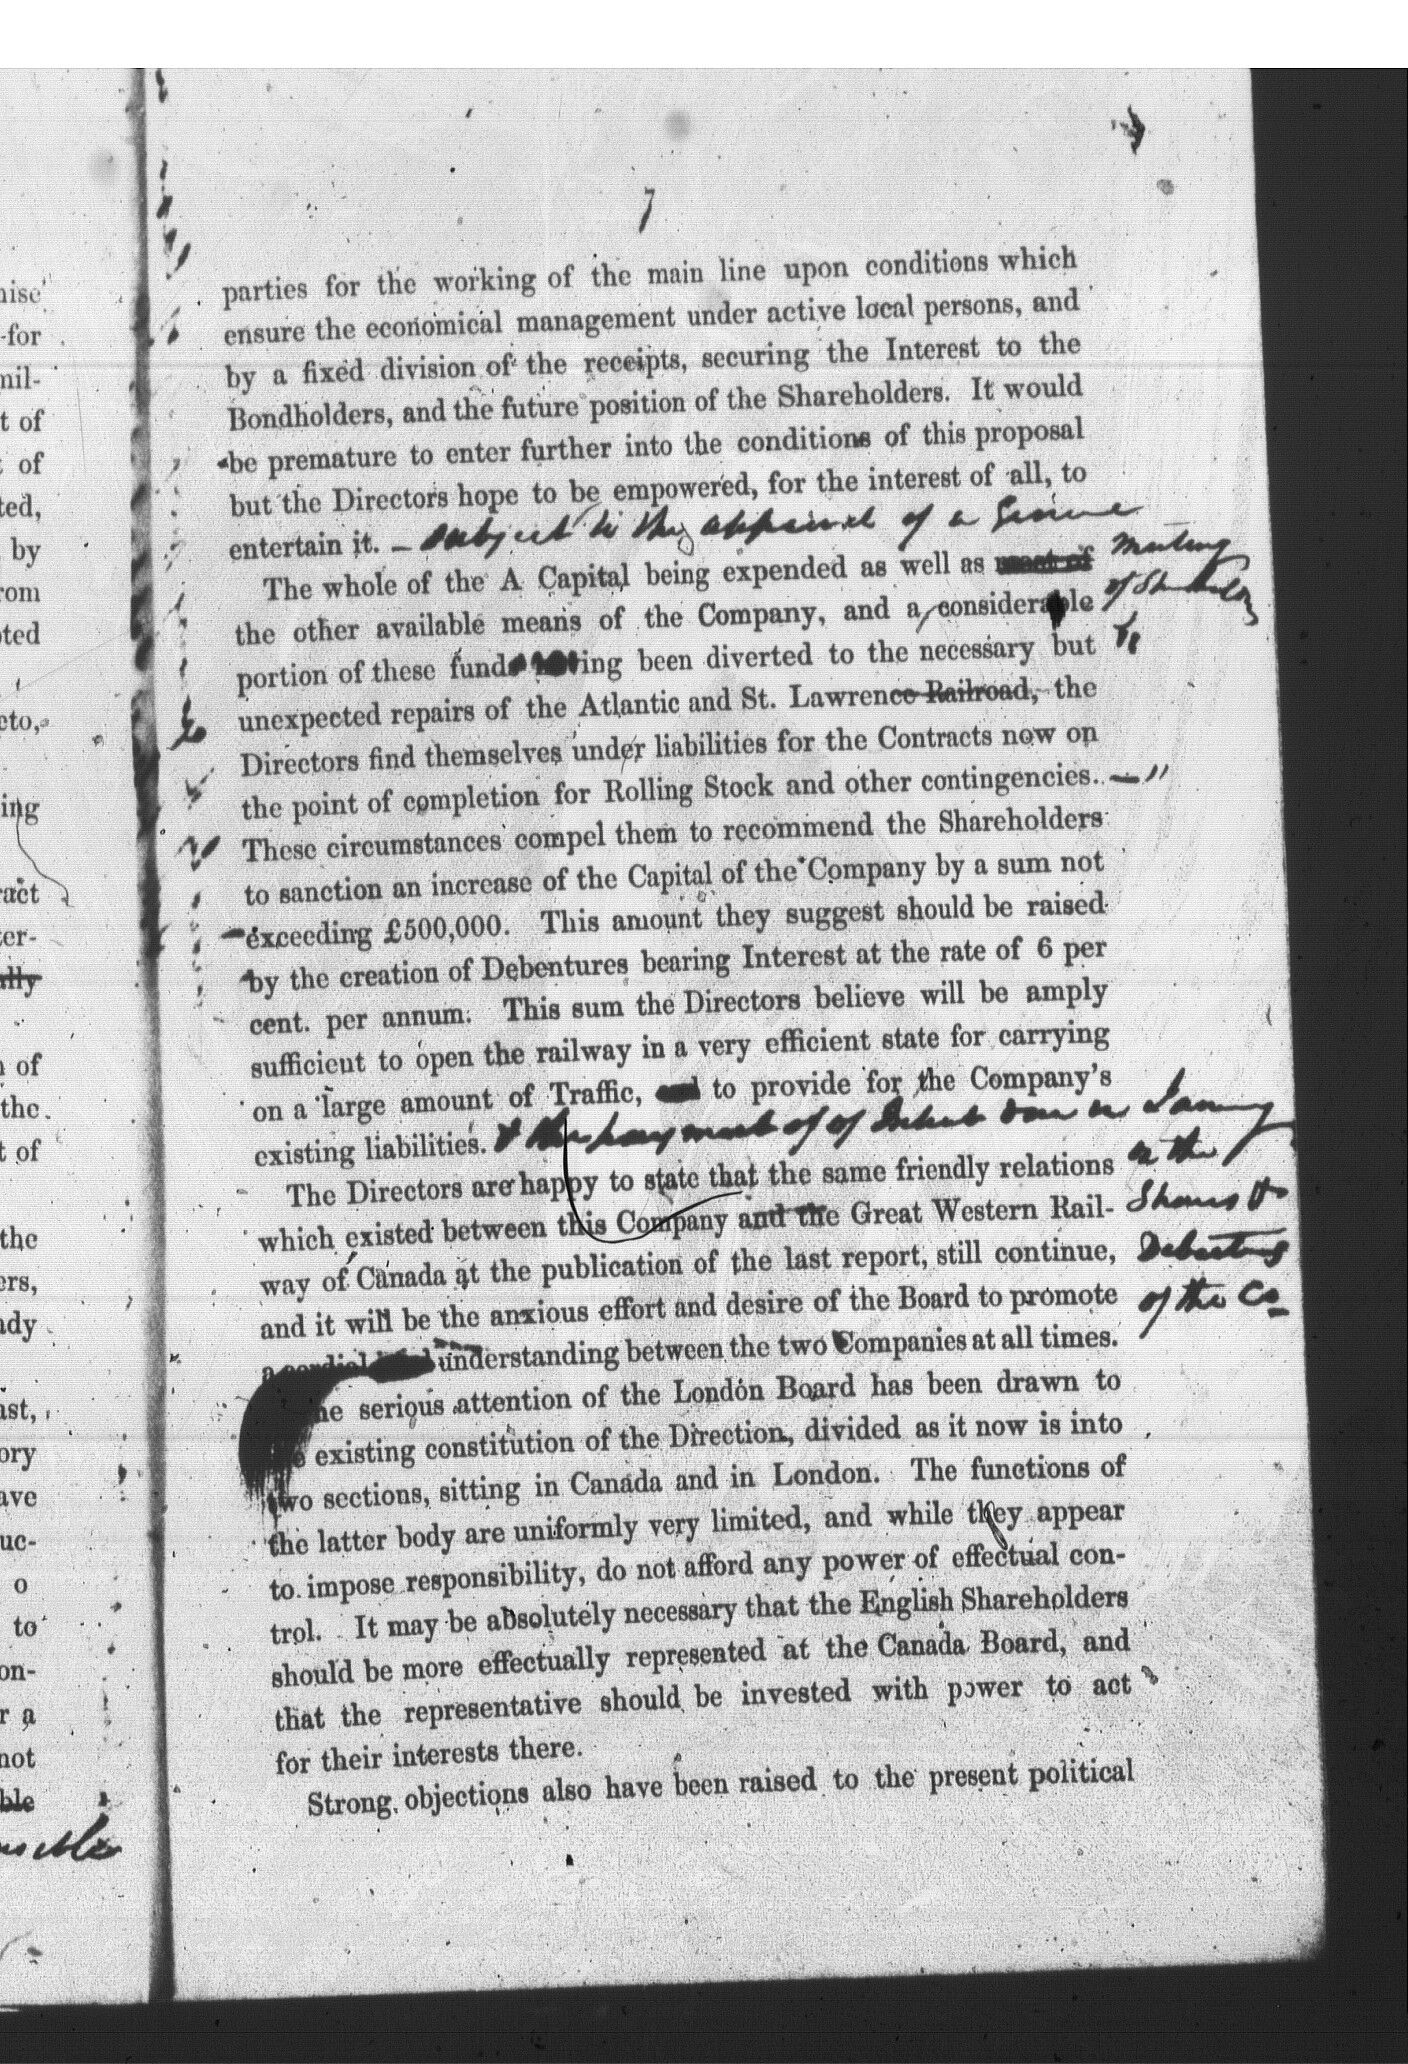 7
parties for the working of the main line upon conditions which
ensure the economical management under active local persons, and
by a fixed division of the receipts, securing the Interest to the
Bondholders, and the future position of the Shareholders. It would
be premature to enter further into the conditions of this proposal
but the Directors hope to be empowered, for the interest of all, to
entertain it. — subject to the approval of a
meeting
of
The whole of the A Capital being expended as well as most of
the other available means of the Company, and a considerable
portion of these funds having been diverted to the necessary but
unexpected repairs of the Atlantic and St. Lawrence Railroad, the
Directors find themselves under liabilities for the Contracts now on
the point of completion for Rolling Stock and other contingencies.
These circumstances compel them to recommend the Shareholders
to sanction an increase of the Capital of the Company by a sum not
exceeding £500,000. This amount they suggest should be raised
by the creation of Debentures bearing Interest at the rate of 6 per
cent. per annum. This sum the Directors believe will be amply
sufficient to open the railway in a very efficient state for carrying
on a large amount of Traffic, and to provide for the Company's
existing liabilities. & the payment of
on the
Shares &
Debentures
of the Co
The Directors are happy to state that the same friendly relations
which existed between this Company and the Great Western Rail-
way of Canada at the publication of the last report, still continue,
and it will be the anxious effort and desire of the Board to promote
a cordial understanding between the two Companies at all times.
The serious attention of the London Board has been drawn to
the existing constitution of the Direction, divided as it now is into
two sections, sitting in Canada and in London. The functions of
the latter body are uniformly very limited, and while they appear
to impose responsibility, do not afford any power of effectual con-
trol. It may be absolutely necessary that the English Shareholders
should be more effectually represented at the Canada Board, and
that the representative should be invested with power to act
for their interests there.
Strong objections also have been raised to the present political